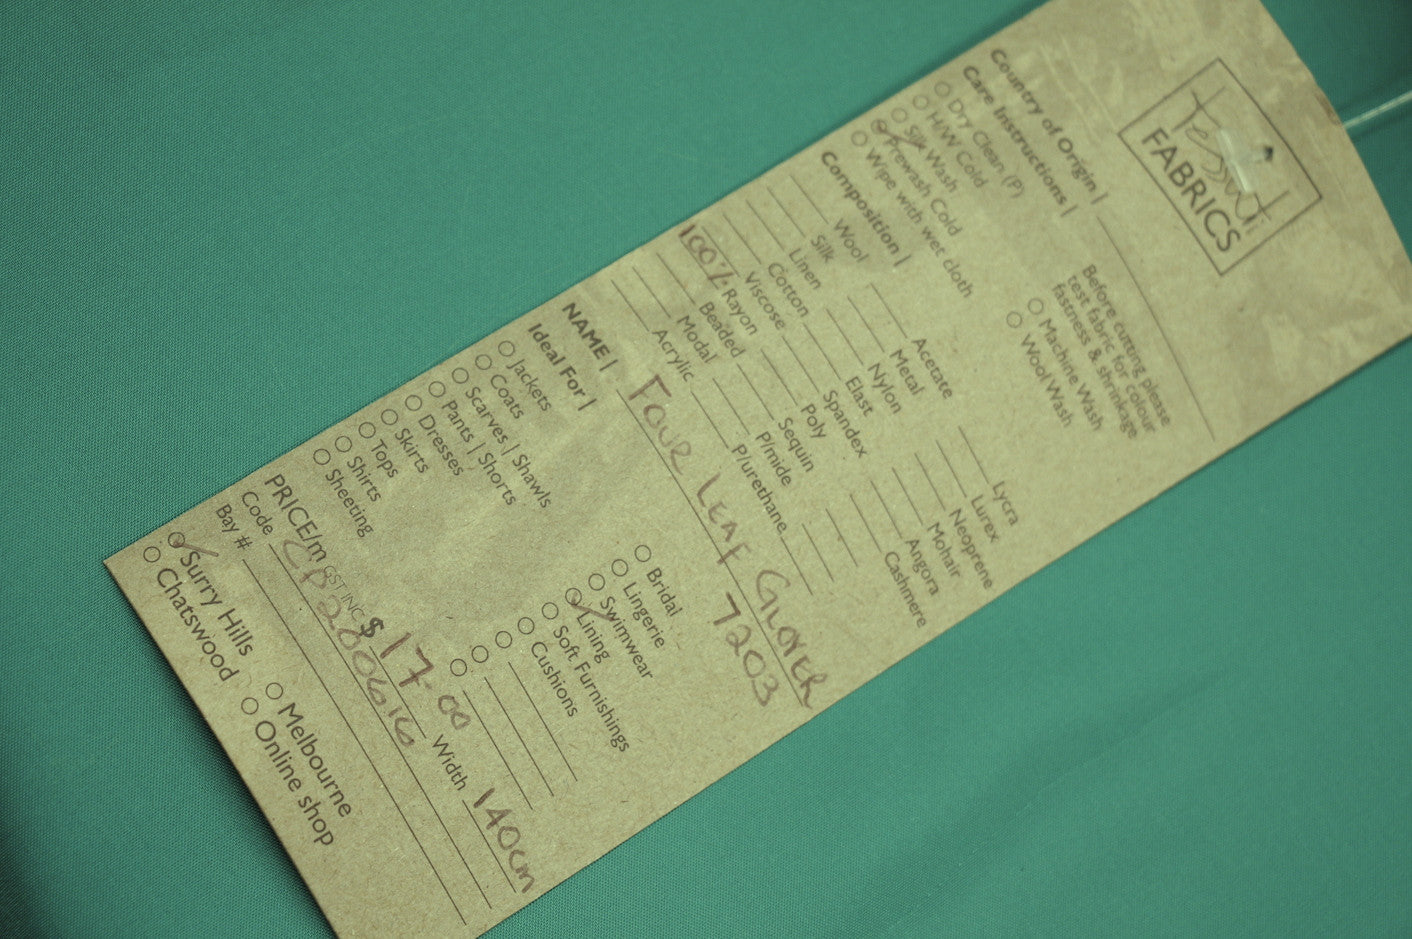 Tessuti
FABRICS
Country of Origin |
Care Instructions |
Before cutting please
test fabric for colour
fastness & shrinkage
Dry Clean (P)
H/W Cold
Silk Wash
Prewash Cold
Wipe with wet cloth
Machine Wash
Wool Wash
Composition |
Wool
Silk
Linen
Cotton
Viscose
100% Rayon
Beaded
Modal
Acrylic
Acetate
Metal
Nylon
Elast
Spandex
Poly
Sequin
P/mide
P/urethane
Lycra
Lurex
Neoprene
Mohair
Angora
Cashmere
NAME | FOUR LEAF GLOVER
7203
Ideal For |
Jackets
Coats
Scarves | Shawls
Pants | Shorts
Dresses
Skirts
Tops
Shirts
Sheeting
Bridal
Lingerie
Swimwear
Lining
Soft Furnishings
Cushions
PRICE/m GST INC $ 17.00 Width 140cm
Code CD280616
Bay #
Surry Hills
Chatswood
Melbourne
Online shop